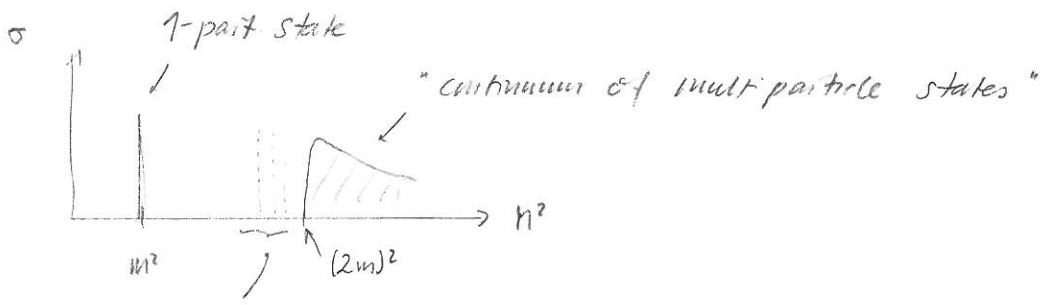 σ
1-part. state
"continuum of multiparticle states"
M²
m²
(2m)²